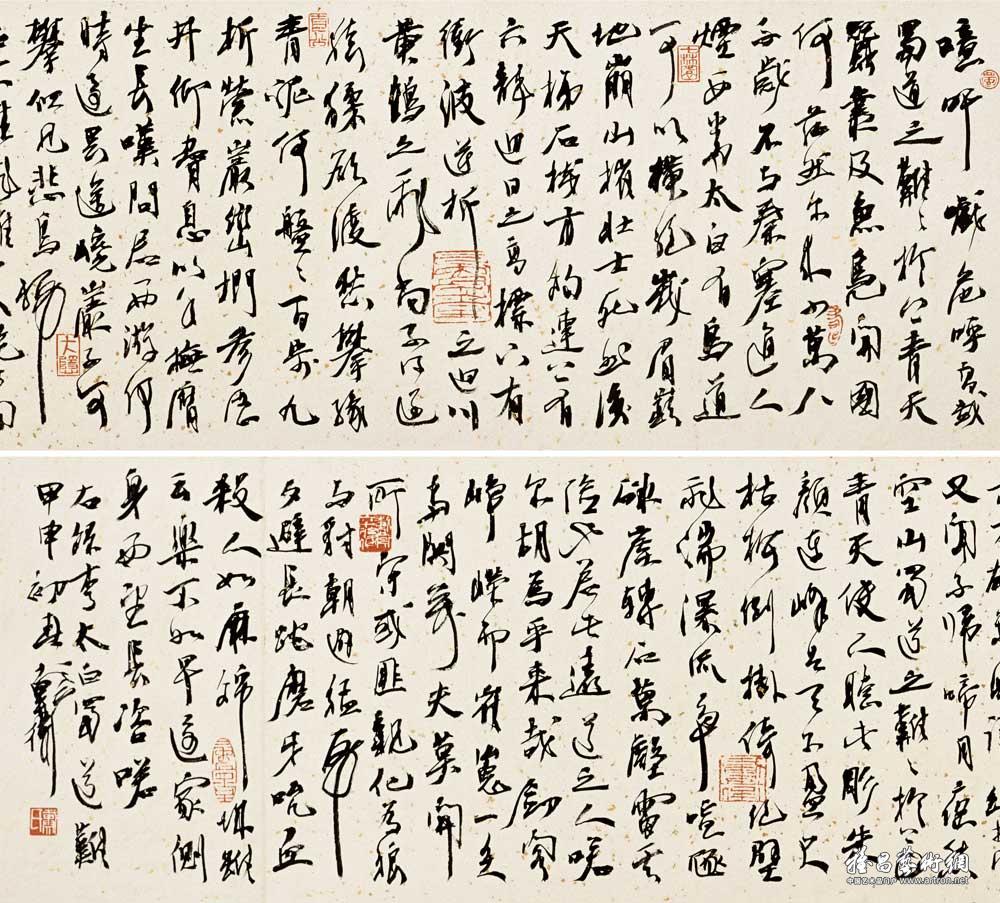 噫吁嚱危呼高哉
蜀道之難々於上青天
蠶叢及魚鳧開國
何茫然尔来四萬八
千歲不与秦塞通人
煙西當太白有鳥道
可以橫絕峨眉巔
地崩山摧壯士死然後
天梯石棧方鉤連上有
六龍迴日之高標下有
衝波逆折之迴川
黃鶴之飛尚不得過
猿猱欲度愁攀緣
青泥何盤々百步九
折縈巖巒捫參歷
井仰脅息以手撫膺
坐長嘆問君西游何
時還畏途巉巖不可
攀但見悲鳥號
又聞子歸啼月夜愁
空山蜀道之難々於上
青天使人聽此彫朱
顏連峰去天不盈尺
枯松倒掛倚絕壁
飛湍瀑流爭喧豗
砯崖轉石萬壑雷其
險也若此遠道之人嗟
尔胡為乎来哉劍閣
崢嶸而崔嵬一夫
當關萬夫莫開
所守或匪親化為狼
与豺朝避猛虎
夕避長蛇磨牙吮血
殺人如麻錦城雖
云樂不如早還家側
身西望長咨嗟
右錄李太白蜀道難
甲申初春
大隱
雅昌藝術網
中国艺术品门户 www.artron.net